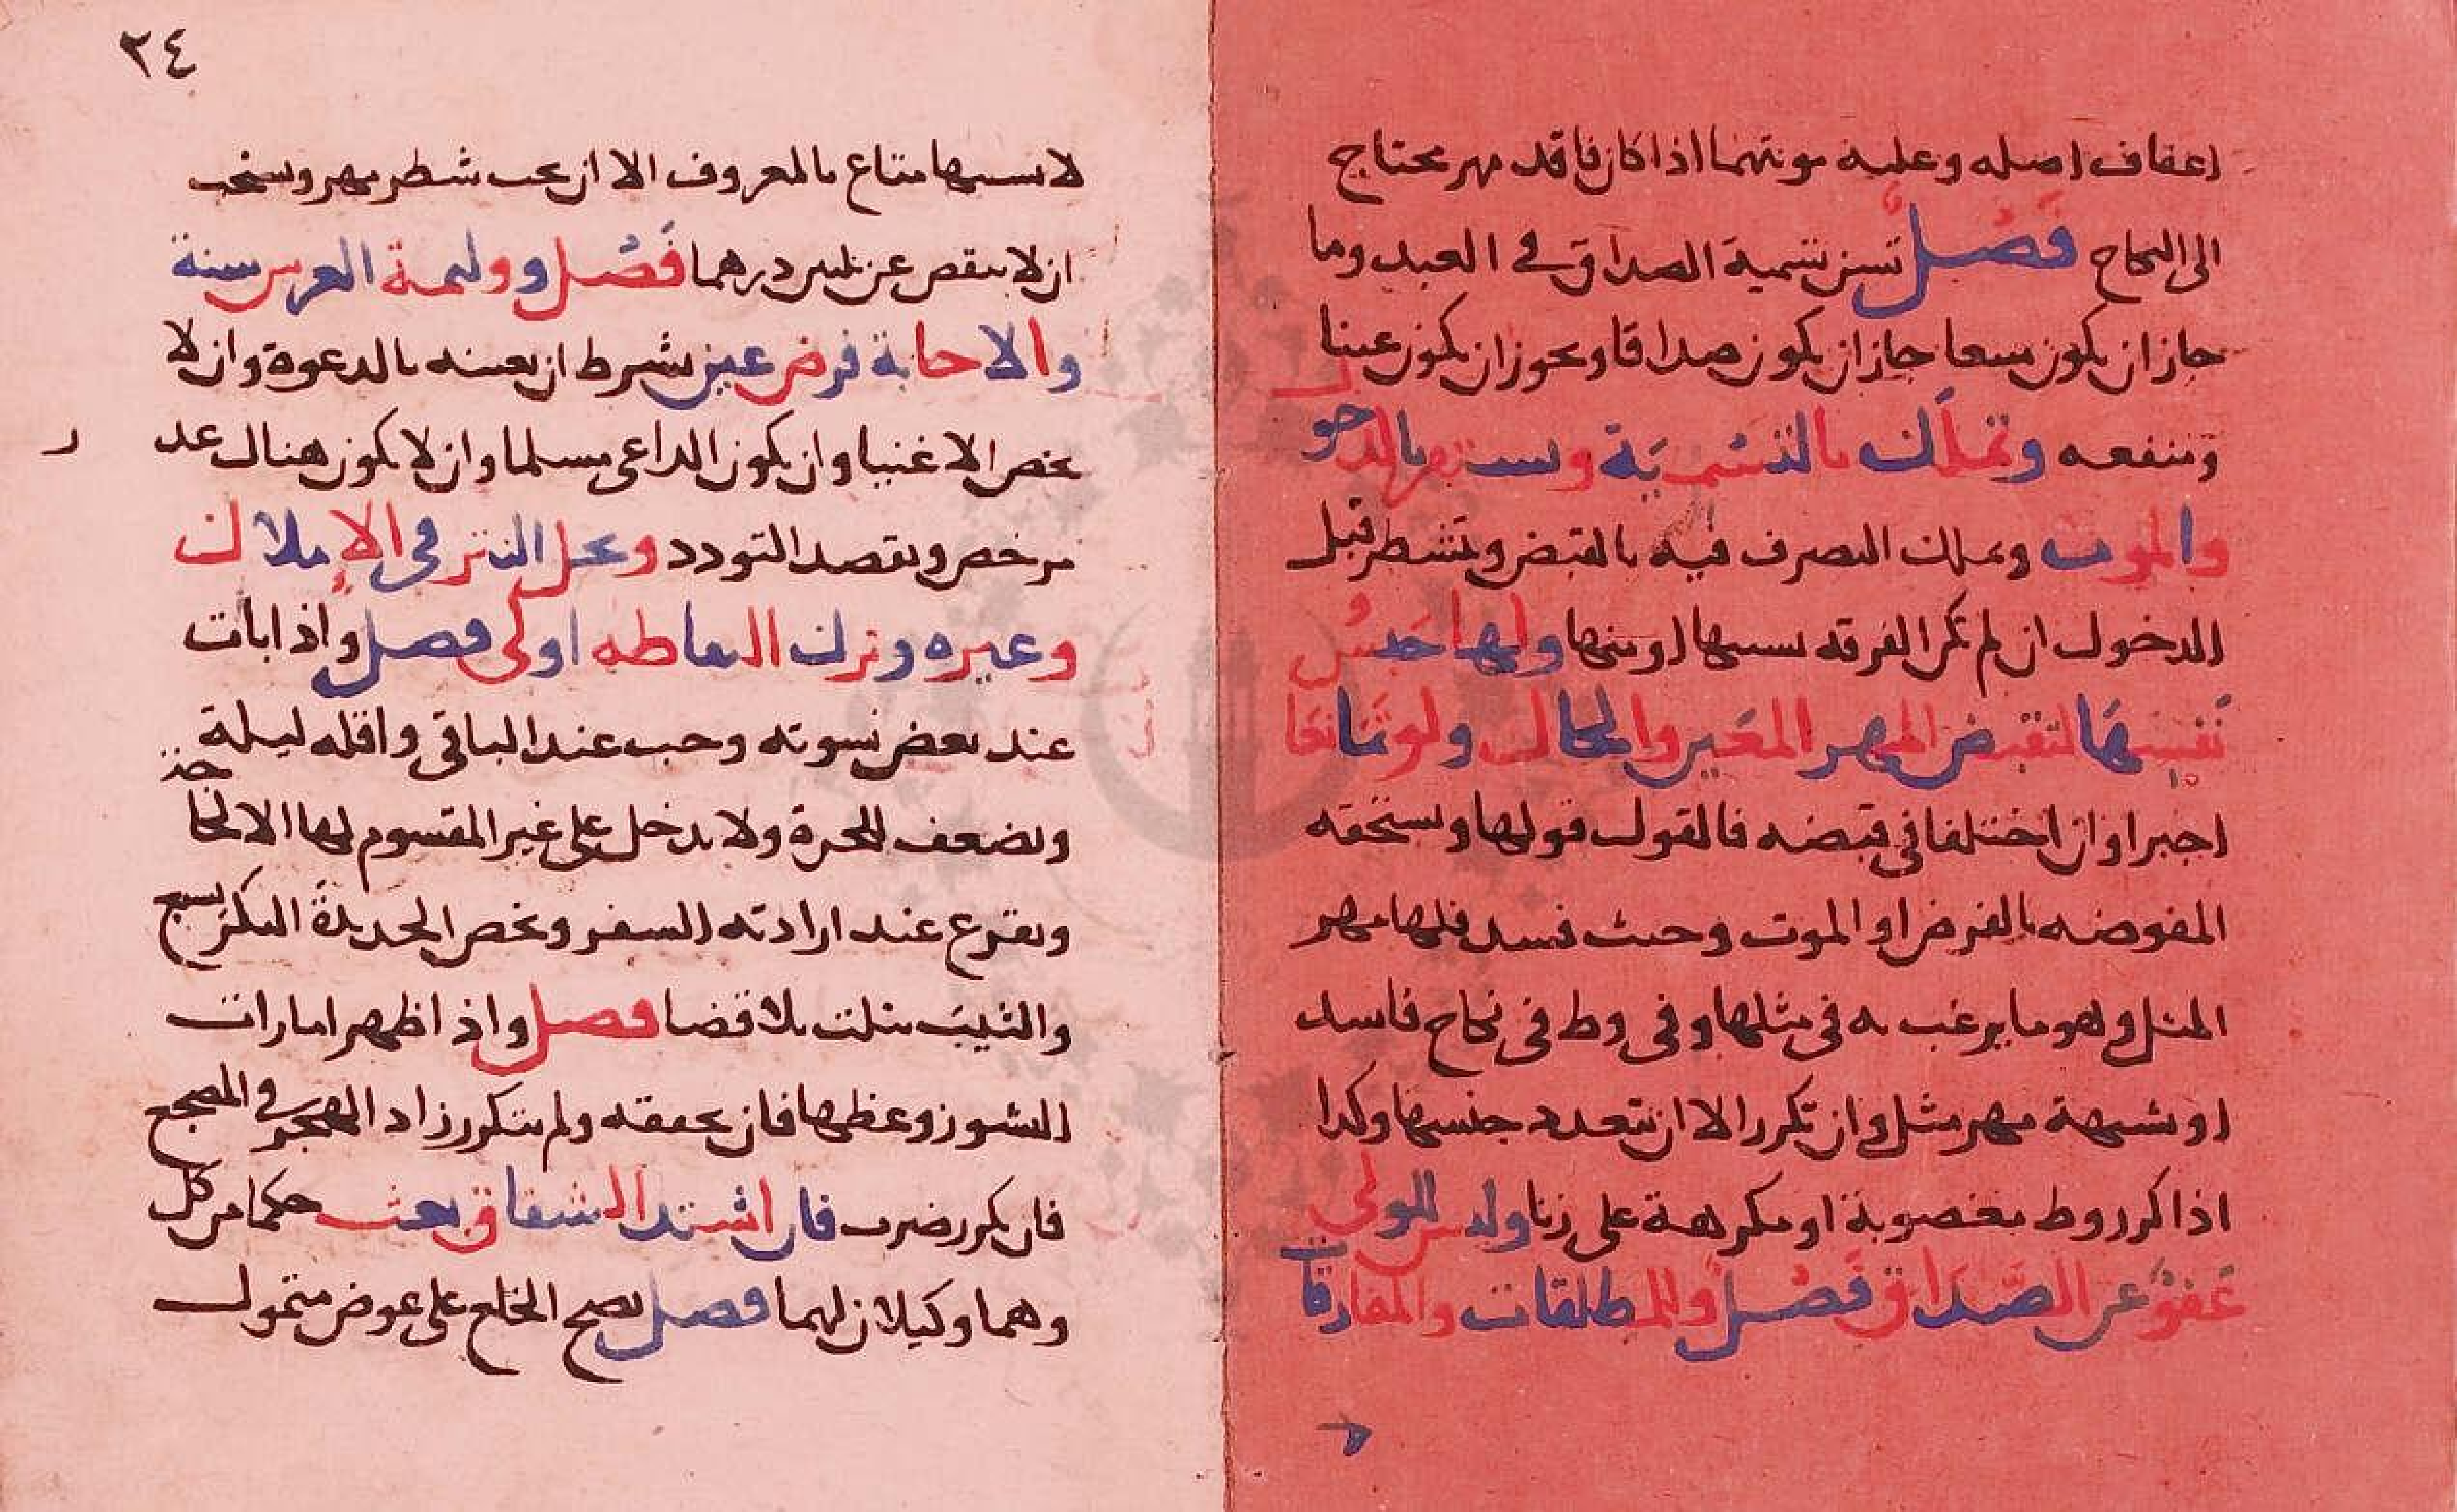 اعفاف اصله وعليه مونتهما اذا كان فاقد مهر محتاج
الى النكاح فصل تسن تسمية الصداق في العبد وما
جاز ان يكون مبيعا جاز ان يكون صداقا ويجوز ان يكون عينا
ومنفعه وتملك بالتسمية ويستقر بالدخو
والموت ويملك التصرف فيه بالقبض ويتشطر قبل
الدخول ان لم تكن الفرقه بسببها او منها ولها حبس
نفسها لتقبض المهر المعين والحال ولو تمانعا
اجبرا وان اختلفا في قبضه فالقول قولها وتستحقه
المفوضه بالفرض او الموت وحيث فسد فلها مهر
المثل وهو ما يرغب به في مثلها وفي وط في نكاح فاسد
او شبهة مهر مثل وان تكرر الا ان يتعدد جنسها وكذا
اذا كرر وط مغصوبة او مكرهة على زنا وليس للولي
عفو عن الصداق فصل وللمطلقات والمفارقات
٢٤
لا بسببها متاع بالمعروف الا ان يجب شطر مهر ويستحب
ان لا ينقص عن ثلثين درهما فصل ووليمة العرس سنة
والاجابة فرض عين بشرط ان يعينه بالدعوة وان لا
يخص الاغنيا وان يكون الداعى مسلما وان لا يكون هناك عد
من خص ويقصد التودد ويحل النثر في الإملاك
وغيره وترك التعاطه اولى فصل واذا بات
عند بعض نسوته وجب عند الباقى واقله ليلة
ويضعف للحرة ولا يدخل على غير المقسوم لها الا لحا
جة
ويقرع عند ارادته السفر ويخص الجديدة البكر بسبع
والثيب بثلث بلا قضا فصل واذا ظهر امارات
النشوز وعظها فان تحققه ولم يتكرر زاد الهجر في المضجع
فان تكرر ضرب فان اشتد الشقاق بعث حكما من كل
وهما وكيلان لهما فصل يصح الخلع على عوض متمول